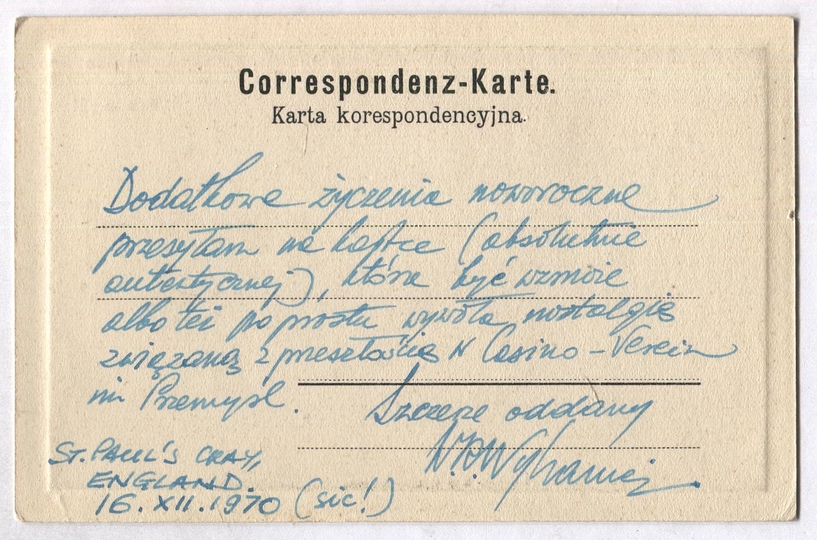 Correspondenz-Karte.
Karta korespondencyjna.
Dodatkowe życzenia noworoczne
przesyłam na kartce (absolutnie
autentycznej), która być może
albo też po prostu wywoła nostalgię
związaną z przeszłością w Casino-Verein
im Przemysl.
Szczerze oddany
ST. PAUL'S CRAY,
ENGLAND.
16. XII. 1970 (sic!)